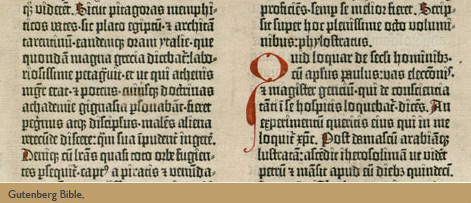 q; viderēt. Sicut pitagoras memphi-
ticos vates. sic plato egiptū. et architā
tarentinū. eandemq; oram ytalie. que
quondā magna grecia dicebat̄: labo-
riosissime peragrauit: et ut qui athenis
mgr̄ erat. et potens. cuiusq; doctrinas
achademie gignasia ꝑsonabāt. fieret
peregrinus atq; discipulus: malēs aliena
verecūde discere: q̄m sua īpudēnt̄ ingerere.
Deniq; cū lr̄as quasi toto orbe fugien-
tes ꝑsequit̄. capt⁹ a piratis et venūda-
proficeres. semp se melior fieret. Scrip-
sit super hoc plenissime octo volumi-
nibus: phylostratus.
Quid loquar de seculi hominibꝫ.
cū apl̄us paulus: vas electōnis.
et magister gentiū. qui de consciencia
tāti ī se hospitis loquebat̄. dices. An
experimentū queritis eius qui in me
loquit̄ xp̄c. Post damascū arabiāq;
lustratā: ascēdit iherosolimā ut videret
petrū et māsit apud eū diebꝫ quindeci.
Gutenberg Bible,